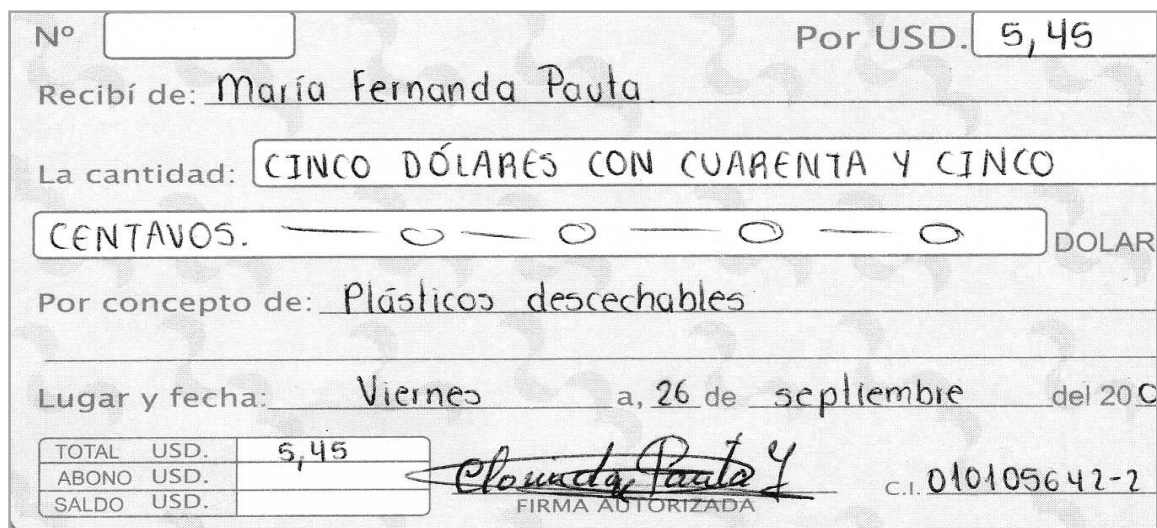 Nº Por USD. 5,45
Recibí de: María Fernanda Pauta
La cantidad: CINCO DÓLARES CON CUARENTA Y CINCO
CENTAVOS. DOLAR
Por concepto de: Plásticos descechables
Lugar y fecha: Viernes a, 26 de septiembre del 200
TOTAL USD. 5,45
ABONO USD.
SALDO USD.
Clorinda Pauta Y
FIRMA AUTORIZADA
C.I. 010105642-2